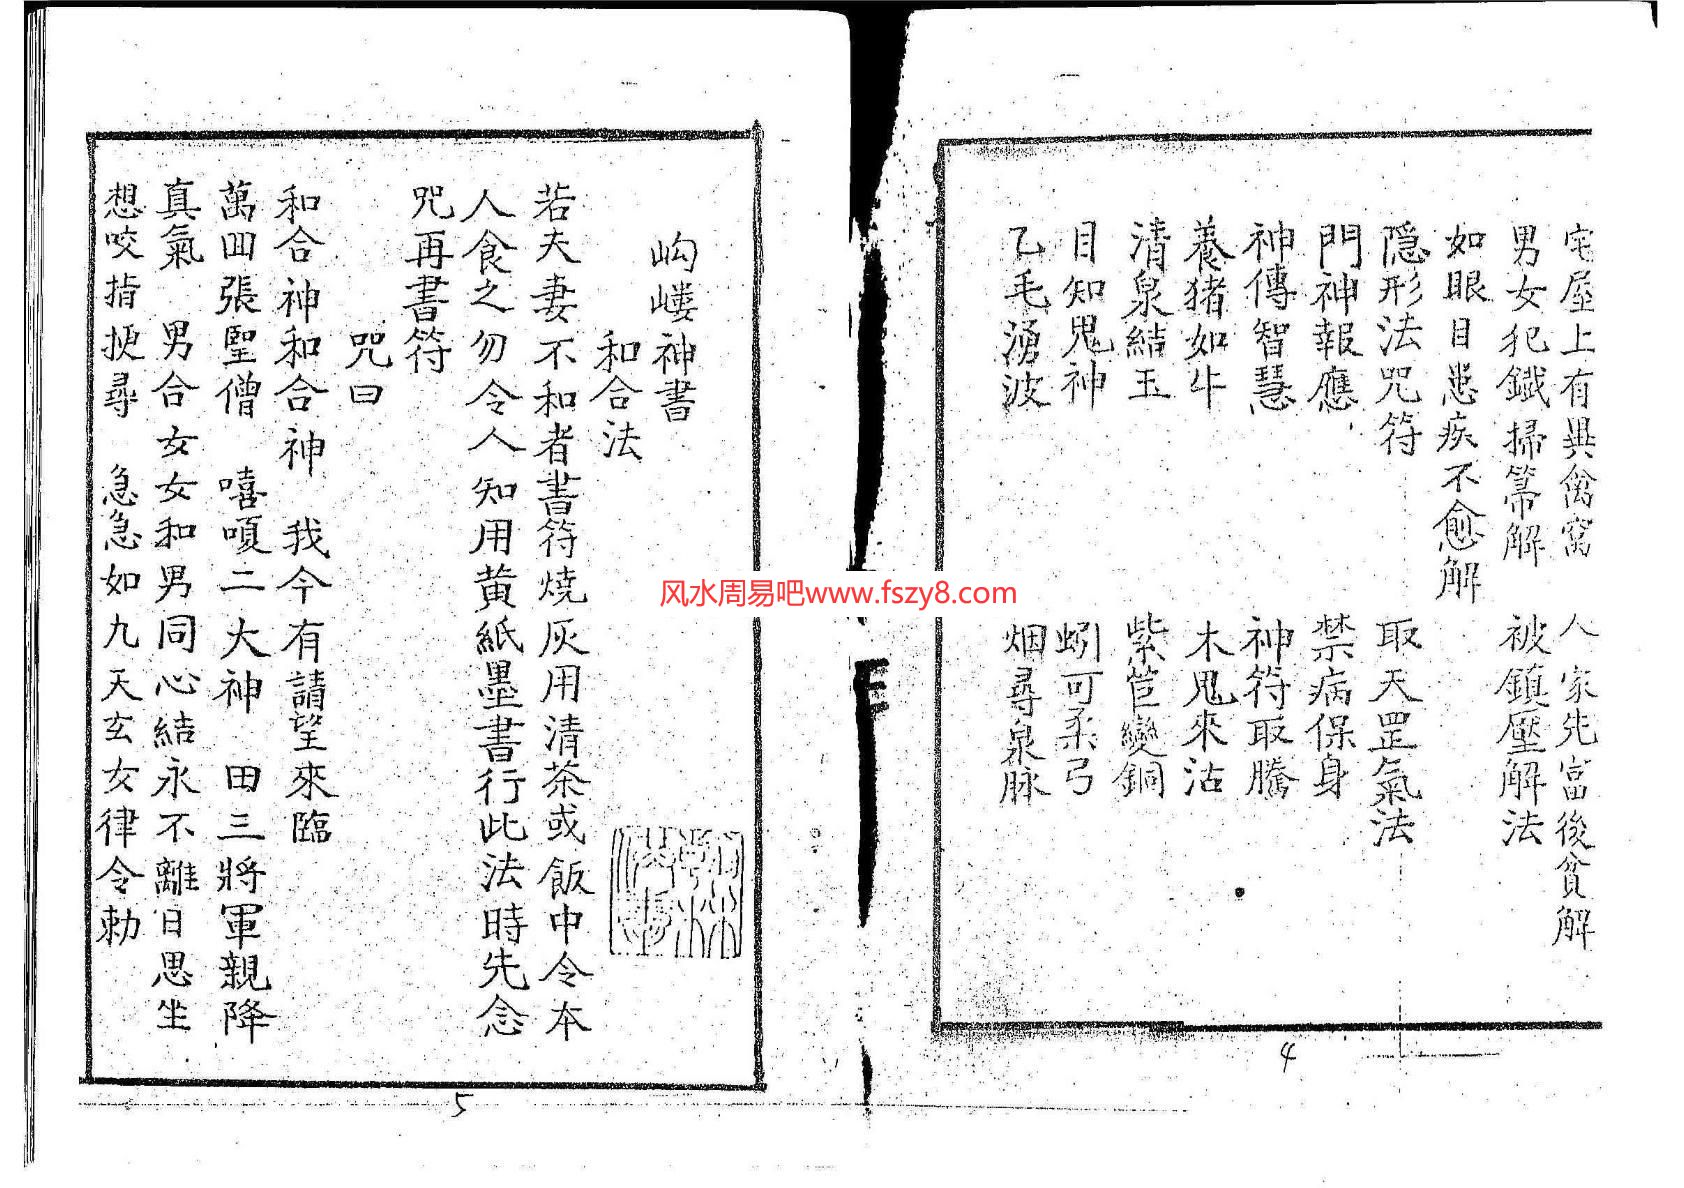 宅屋上有異禽窩 人家先富後貧解
男女犯鐵掃箒解 被鎮壓解法
如眼目患疾不愈解
隱形法咒符 取天罡氣法
門神報應 禁病保身
神傳智慧 神符取騰
養猪如牛 木鬼來沽
清泉結玉 紫笸變銅
目知鬼神 蚓可柔弓
乙毛湧波 烟尋泉脉
4
岣嶁神書
和合法
若夫妻不和者書符燒灰用清茶或飯中令本
人食之勿令人知用黄紙墨書行此法時先念
咒再書符
咒曰
和合神和合神 我今有請望來臨
萬回張聖僧 嘻嗊二大神 田三將軍親降
真氣 男合女女和男同心結永不離日思坐
想咬指挭尋 急急如九天玄女律令勅
5
风水周易吧www.fszy8.com